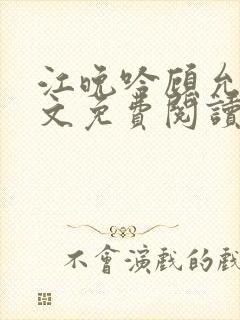 江晚吟顧允
文免費閱讀
不會演戲的戲